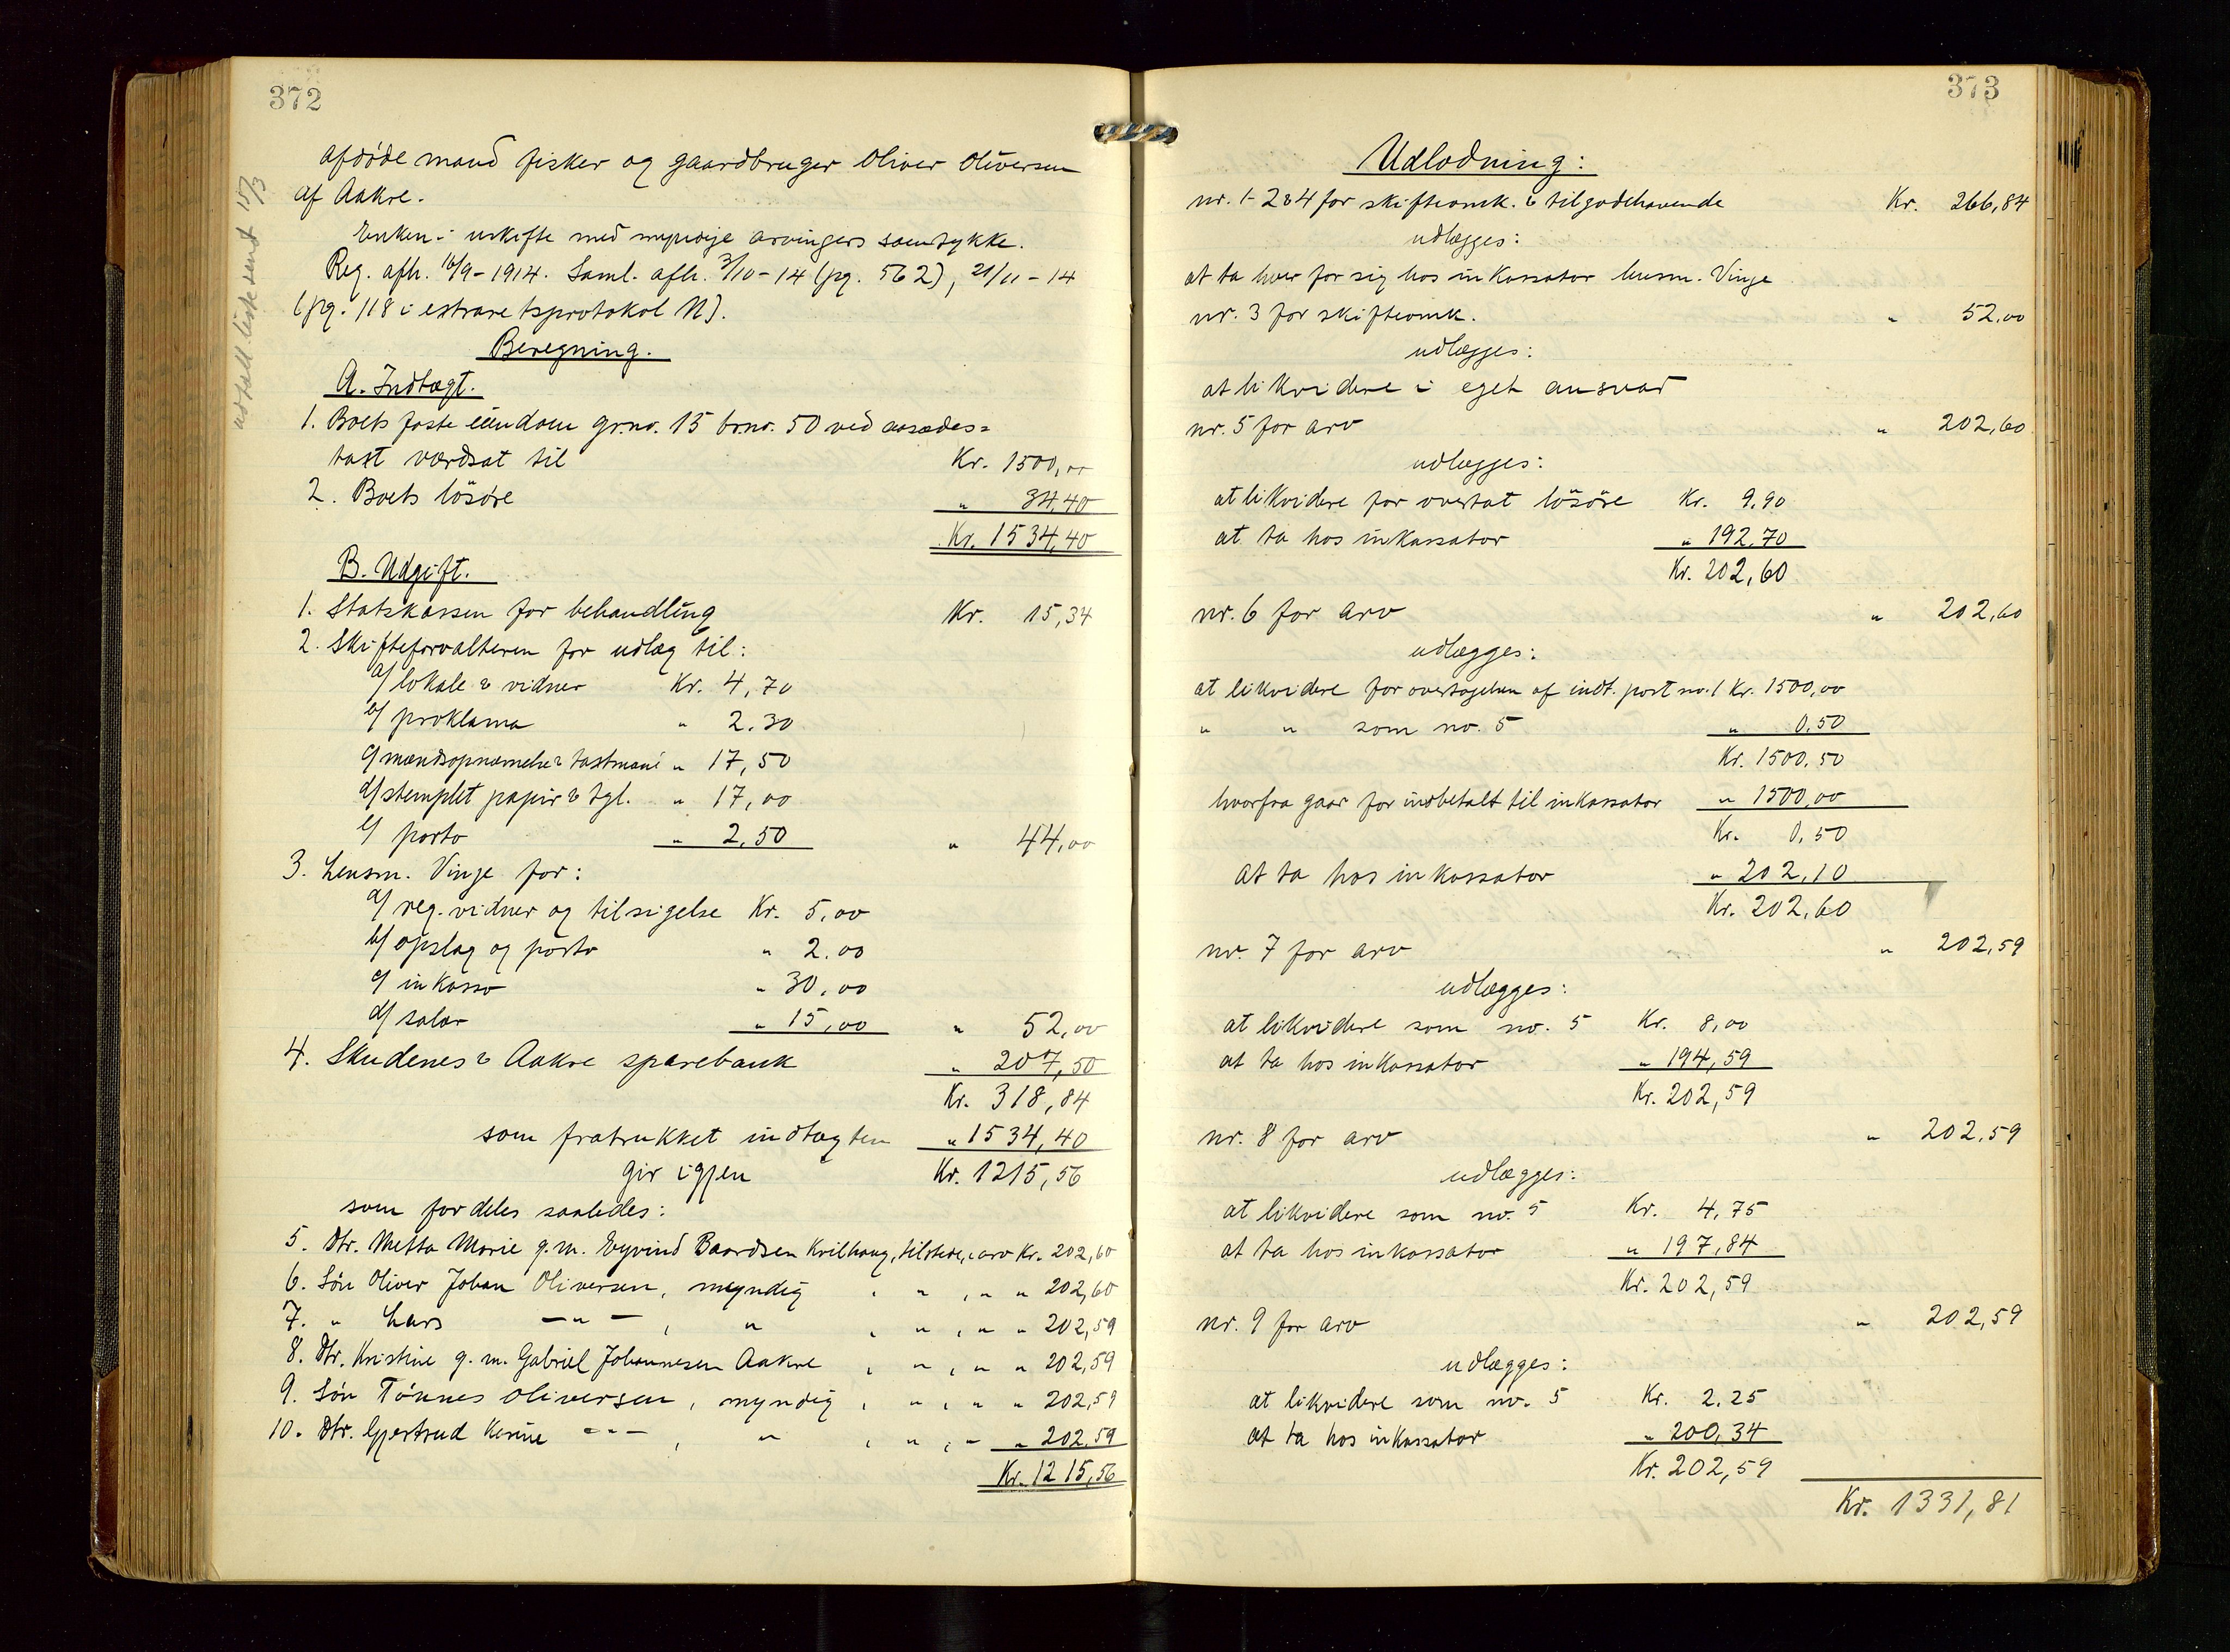 372
afdøde mand fisker og gaardbruger Oliver Oliversen
af Aakre.
Enken i uskifte med myndige arvingers samtykke.
Reg. afh. 16/9-1914. Saml. afh. 3/10-14 (pg. 562), 21/11-14
(pg. 118 i extraretsprotokol N).
Beregning.
A. Indtægt.
1. Boets faste eiendom gr.no. 15 br.no. 50 ved aasædes=
taxt værdsat til Kr. 1500,00
2. Boets løsøre " 34,40
Kr. 1534,40
B. Udgift.
1. Statskassen for behandling Kr. 15,34
2. Skifteforvalteren for udlæg til:
a/ lokale & vidner Kr. 4,70
b/ proklama " 2.30
c/ mandsopnævnelse & taxtmænd " 17,50
d/ stemplet papir & tgl. " 17,00
e/ porto " 2,50 " 44,00
3. Lensm. Vinje for:
a/ reg. vidner og tilsigelse Kr. 5,00
b/ opslag og porto " 2.00
c/ inkasso " 30,00
d/ salær " 15,00 " 52,00
4. Skudenes & Aakre sparebank " 207,50
Kr. 318,84
som fratrukket indtægten " 1534,40
gir igjen Kr. 1215,56
som fordeles saaledes:
5. Dtr. Metta Marie g.m. Eyvind Baardsen Kvilhaug, tilstede, i arv Kr. 202,60
6. Søn Oliver Johan Oliversen, myndig , " , " " 202,60
7. " Lars -"- , " , " , " " 202,59
8. Dtr. Kristine g.m. Gabriel Johannesen Aakre , " , " " 202,59
9. Søn Tønnes Oliversen, myndig , " , " " 202,59
10. Dtr. Gjertrud Kerine -"- , " , " , " " 202,59
Kr. 1215,56
utfall liste sendt 15/3
373
Udlodning:
nr. 1-2&4 for skifteomk. & tilgodehavende Kr. 266,84
udlægges:
at ta hver for sig hos inkassator lensm. Vinje
nr. 3 for skifteomk. " 52,00
udlægges:
at likvidere i eget ansvar
nr. 5 for arv " 202,60
udlægges:
at likvidere for overtat løsøre Kr. 9,90
at ta hos inkassator " 192,70
Kr. 202,60
nr. 6 for arv " 202,60
udlægges:
at likvidere for overtagelsen af indt. post no. 1 Kr. 1500,00
" " som no. 5 " 0,50
Kr. 1500,50
hvorfra gaar for indbetalt til inkassator " 1500,00
Kr. 0,50
at ta hos inkassator " 202,10
Kr. 202,60
nr. 7 for arv " 202,59
udlægges:
at likvidere som no. 5 Kr. 8,00
at ta hos inkassator " 194,59
Kr. 202,59
nr. 8 for arv " 202,59
udlægges:
at likvidere som no. 5 Kr. 4,75
at ta hos inkassator " 197,84
Kr. 202,59
nr. 9 for arv " 202,59
udlægges:
at likvidere som no. 5 Kr. 2,25
at ta hos inkassator " 200,34
Kr. 202,59
Kr. 1331,81